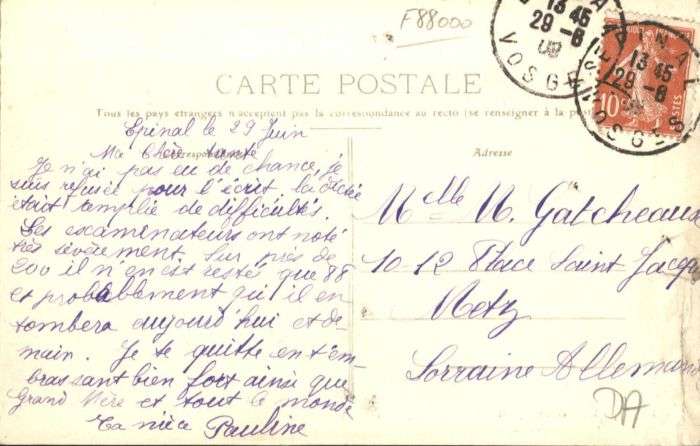 F88000
EPINAL
13 45
29-6
VOSGES
EPINAL
13 45
29-6
VOSGES
10
POSTES
CARTE POSTALE
Tous les pays étrangers n'acceptent pas la correspondance au recto (se renseigner à la poste)
Correspondance
Adresse
Epinal le 29 Juin
Ma Chère tante
Je n'ai pas eu de chance, je
suis refusée pour l'écrit. la dictée
était remplie de difficultés.
Les examinateurs ont noté
très sévèrement. Sur près de
200 il n'en est restés que 88
et probablement qu'il en
tombera aujourd'hui et de-
main. Je te quitte en t'em-
brassant bien fort ainsi que
Grand Mère et tout le monde
Ta nièce Pauline
Melle N. Gatcheaux
10-12 Place Saint Jacq
Metz
Lorraine Alleman
DA